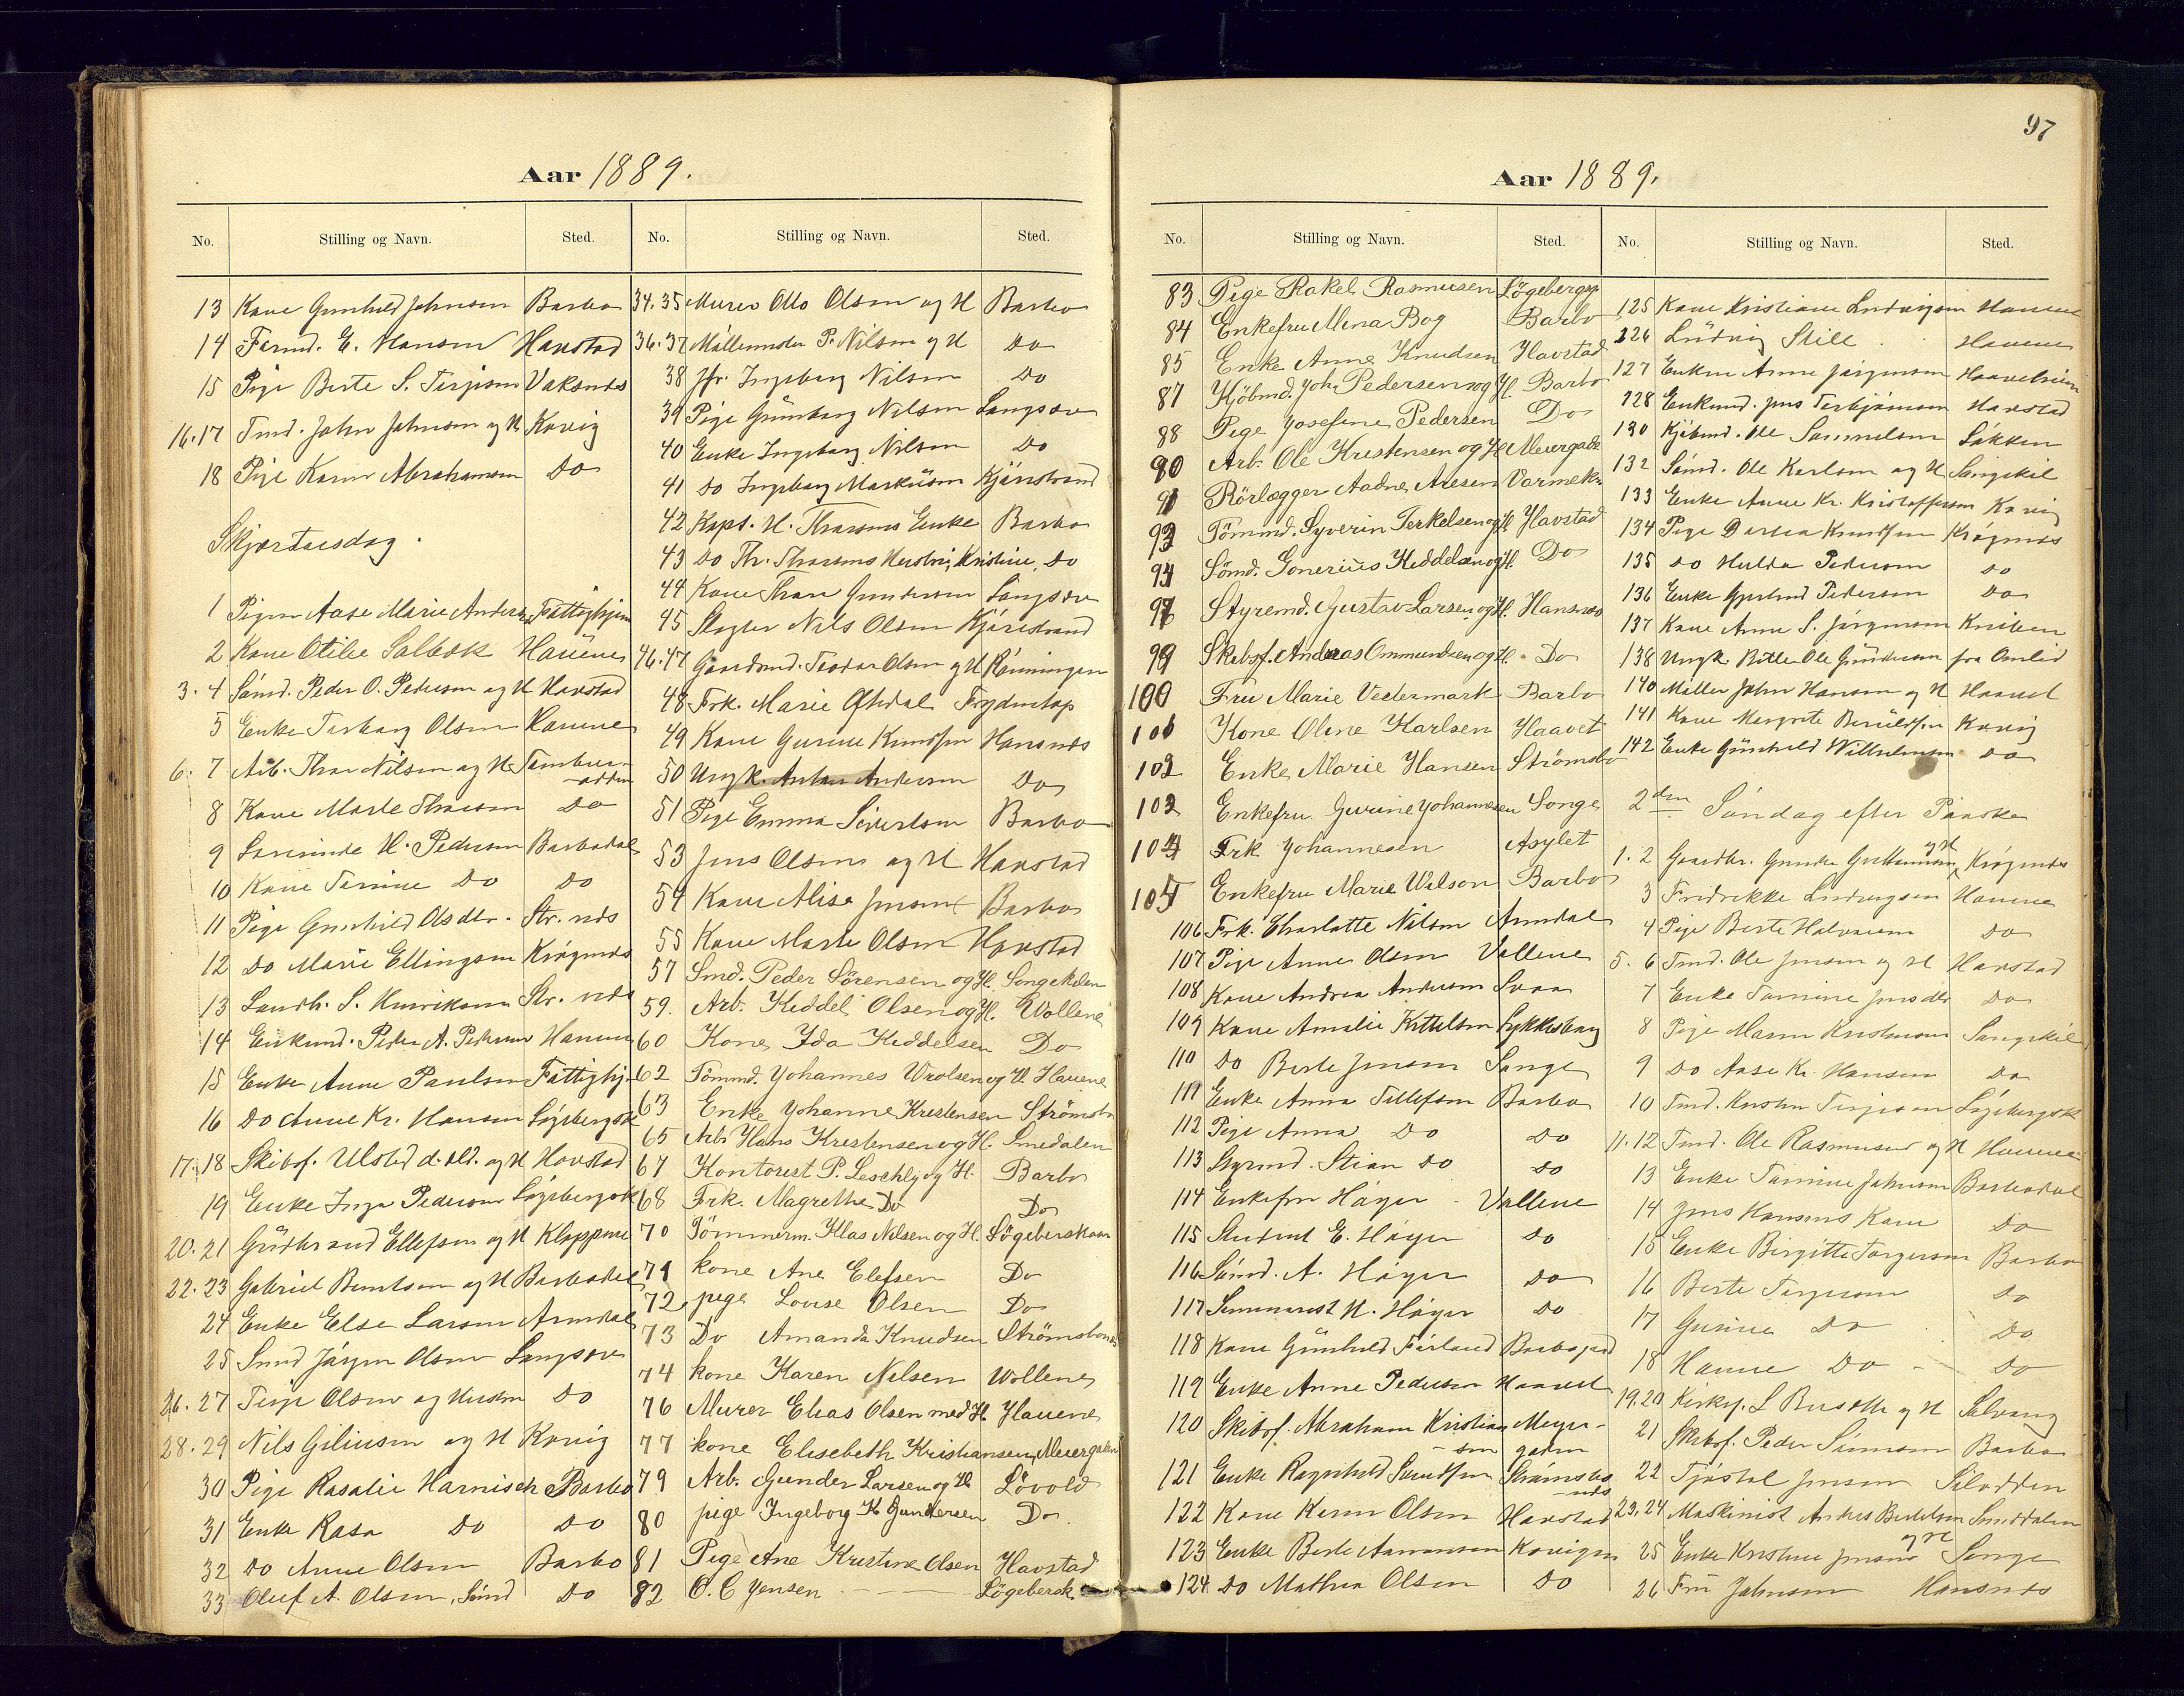 97
Aar 1889.
No. Stilling og Navn. Sted. No. Stilling og Navn. Sted.
13 Kone Gunhild Johnsen Barbo
14 Formd. E. Hansen Havstad
15 Pige Berte S. Terjesen Vaksnes
16.17 Tmd. John Johnsen og H Kovig
18 Pige Karen Abrahamsen Do
Skjærtorsdag.
1 Pigen Aase Marie Anders Fattighjem
2 Kone Otilie Salbek Hauene
3. 4 Sömd. Peder O. Pedersen og H Havstad
5 Enke Torborg Olsen Hauene
6. 7 Arb. Thor Nilsen og H Tømber-
odden
8 Kone Marte Thorsen Do
9 H. Pedersen Barbodal
10 Kone Tomine Do Do
11 Pige Gunhild Olsdtr. Str. nes
12 Do Marie Ellingsen Krøgenes
13 Landh. S. Henriksen Str. nes
14 Enkemd. Peder A. Pedersen Hauene
15 Enke Anne Paulsen Fattighj.
16 Do Anne Kr. Hansen Løgebergsk
17.18 Skibsf. Ulsted d. eld. og H Havstad
19 Enke Inger Pedersen Løgebergsk
20.21 Guldbrand Ellefsen og H Kloppene
22.23 Gabriel Berntsen og H Barbodal
24 Enke Else Larsen Arendal
25 Smed Jørgen Olsen Langsæv
26.27 Terje Olsen og Hustru Do
28.29 Nils Giliusen og H Kovig
30 Pige Rosalie Harnisch Barbo
31 Enke Rosa Do Do
32 Do Anne Olsen Barbo
33 Oluf A. Olsen, Sömd Do
34.35 Murer Otto Olsen og H Barbo
36.37 Møllermester P. Nilsen og H Do
38 Jfr. Ingeborg Nilsen Do
39 Pige Gunborg Nilsen Langsæv
40 Enke Ingeborg Nilsen Do
41 Do Ingeborg Markusen Kjørstrand
42 Kapt. H. Thorsens Enke Barbo
43 Do Th. Thorsens Hustru, Kristine, Do
44 Kone Thore Gundersen Langsæv
45 Slagter Nils Olsen Kjørestrand
46.47 Gaardmd. Teodor Olsen og H Rønningen
48 Frk. Marie Oftedal Frydentop
49 Kone Gurine Knudsen Hansnes
50 Ungk. Anton Andersen Do
51 Pige Emma Sivertsen Barbo
53 Jens Olsen og H Havstad
54 Kone Alise Jensen Barbo
55 Kone Marte Olsen Havstad
57 Smd. Peder Sörensen og H. Songe Kilen
59. Arb. Keddel Olsen og H. Wollene
60 Kone Ida Keddelsen Do
62 Tömmd. Yohannes Wrolsen og H. Hauene
63 Enke Yohanne Kristensen Strömsbo
65 Arb. Hans Kristensen og H. Smedalen
67 Kontorist P. Leschly og H. Barbo
68 Frk. Magrethe Do Do
70 Tömmerm. Klas Nilsen og H. Lögeberskaar
71 kone Ane Elefsen Do
72 pige Lovise Olsen Do
73 Do Amanda Knudsen Strömsbones
74 kone Karen Nilsen Wollene
76 Murer Elias Olsen med H Hauene
77 kone Elisebeth Kristiansen, Meiergaden
79 Arb. Gunder Larsen og H Lövold
80 pige Ingeborg K Gundersen Do.
81 Pige Ane Kristine Olsen Havstad
82 O. C Yensen Lögebersk.
Aar 1889.
No. Stilling og Navn. Sted. No. Stilling og Navn. Sted.
83 Pige Rakel Rasmusen Lögebergsp
84 Enkefru Mina Bog Barbo
85 Enke Anne Knudsen Havstad
87 Kjöbmd. Joh. Pedersen og H. Barbo
88 Pige Josefine Pedersen Do
90 Arb. Ole Kristensen og H Meiergade
91 Rörlægger Aadne Alesen Varmekr.
93 Tömmd. Syverin Terkelsen og H Havstad
94 Sömd. Gonerius Keddelsen og H. Do
97 Styremd. Gustav Larsen og H. Hansnes
99 Skibsf. Andreas Ommundsen og H. Do
100 Fru Marie Vedermark Barbo
101 Kone Oline Karlsen Haavet
102 Enke Marie Hansen Strömsbo
103 Enkefru Gurine Yohannesen Songe
104 Frk. Yohannesen Asylet
105 Enkefru Marie Wilson Barbo
106 Frk. Charlotte Nilsen Arendal
107 Pige Anne Olsen Vollene
108 Kone Andrea Andersen Svaa
109 Kone Amalie Kittelsen Lykkesborg
110 Do Berte Jensen Songe
111 Enke Anna Tellefsen Barbo
112 Pige Anna Do Do
113 Styrmd. Stian Do Do
114 Enkefru Høyer Vollene
115 Student E. Høyer Do
116 Sömd. A. Høyer Do
117 Seminarist H. Høyer Do
118 Kone Gunhild Færland Barbogrd
119 Enke Anne Pedersen Haavet
120 Skibsf. Abraham Kristian Meyer-
sen gaden
121 Enke Ragnhild Strømsbo
nes
122 Kone Karen Olsen Havstad
123 Enke Berte Aanonsen Kovigen
124 Do Mathea Olsen Do
125 Kone Kristiane Ludvigsen Hauene
126 Ludvig Still Hauene
127 Enken Anne Jørgensen
128 Enkemd. Jens Terbjørnsen Havstad
130 Kjøbmd. Ole Samuelsen Løkken
132 Sömd. Ole Karlsen og H Songekil
133 Enke Anne Kr. Kristoffersen Kovig
134 Pige Dortea Knudsen Krøgenes
135 Do Hulda Pedersen Do
136 Enke Gjertrud Pedersen Do
137 Kone Anne S. Jørgensen Kniben
138 Ungk. Ole Gundersen fra Omlid
140 Møller John Hansen og H Haavet
141 Kone Margrete Kovig
142 Enke Gunhild Wilhelmsen Do
2den Søndag efter Paaske
og H
1. 2 Gaardbr. Gunder Guttormsen, Krøgenes
3 Fredrikke Ludvigsen Hauene
4 Pige Berte Halvorsen Do
5. 6 Tmd. Ole Jensen og H Havstad
7 Enke Tomine Jensdtr Do
8 Pige Maren Kristensen Songekil
9 Do Aase Kr. Hansen Do
10 Tmd. Kristen Terjesen Løgebergsk
11.12 Tmd. Ole Rasmusen og H Hauene
13 Enke Tomine Johnsen Barbodal
14 Jens Hansens Kone Do
15 Enke Birgitte Torgersen Barbo
16 Berte Torgersen Do
17 Gurine Do Do
18 Hanne Do Do
19.20 Kirkesg. L og H Solvang
21 Skibsf. Peder Simonsen Barbo
22 Tjøstol Jensen Silodden
23.24 Maskinist Anders Smeddalen
og H
25 Enke Kristine Jensen Songe
26 Fru Johnsen Hansnes